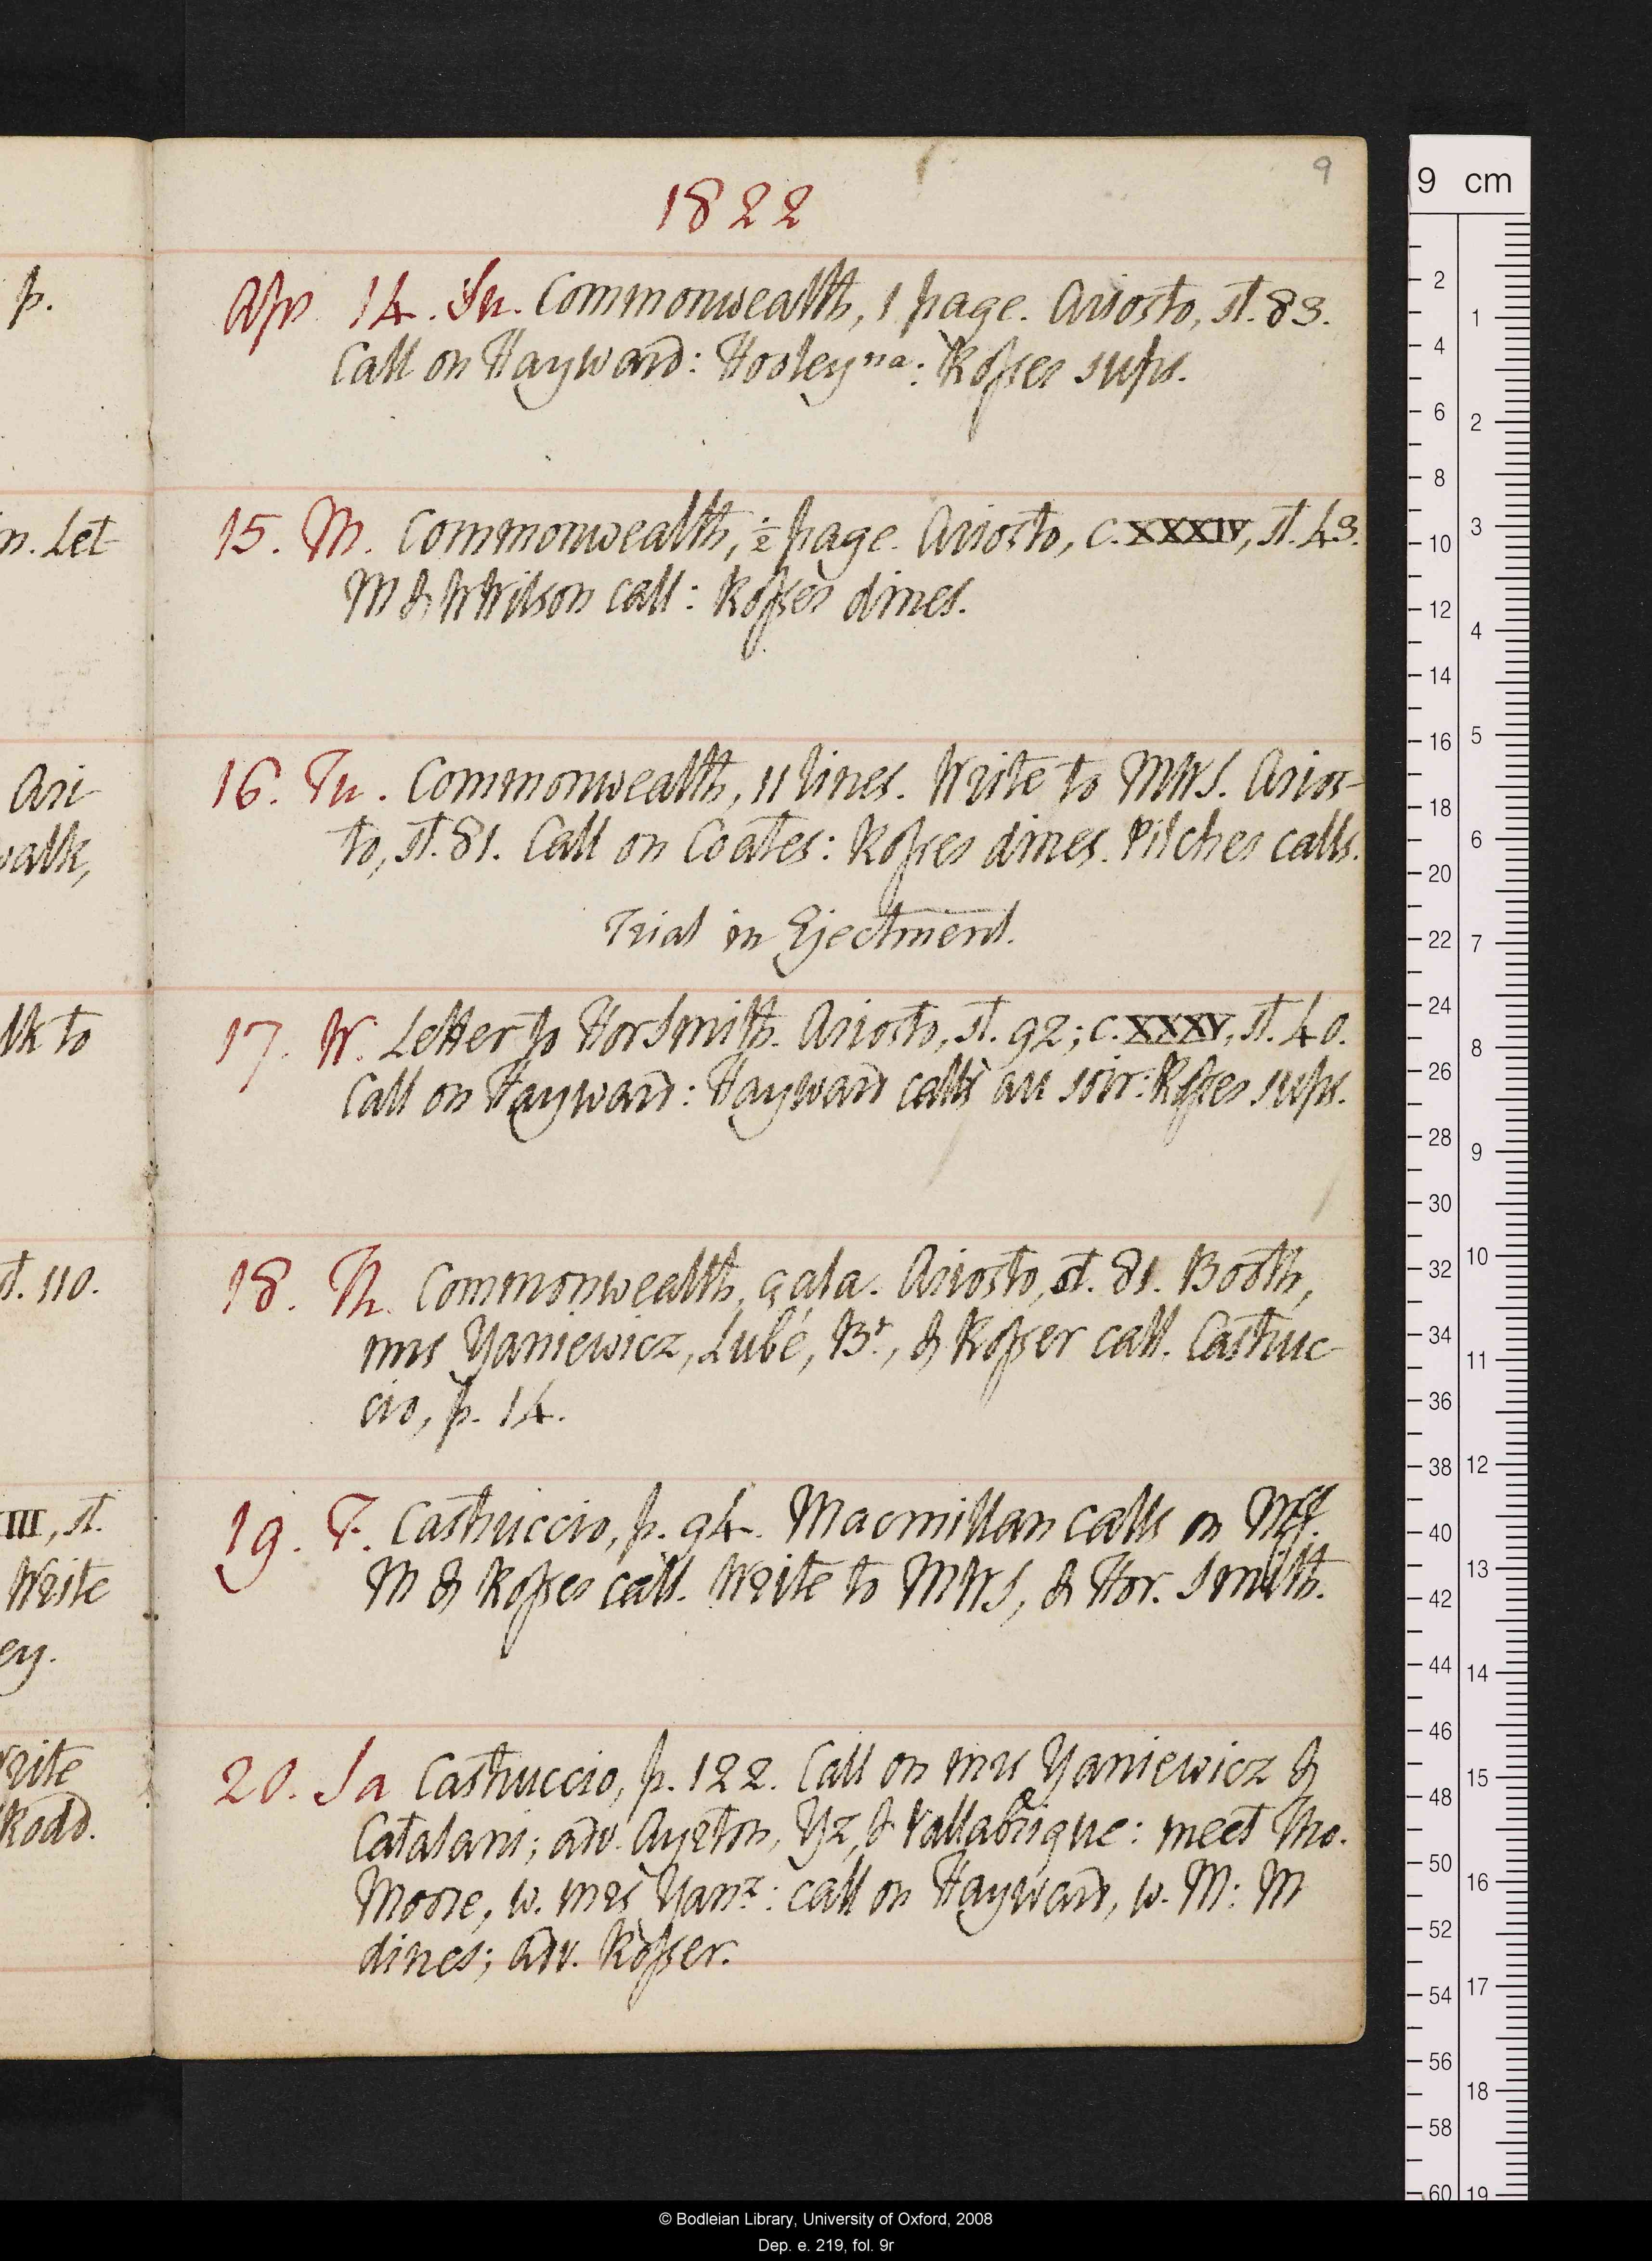 9
1822
p.
Apr 14. Su. Commonwealth, 1 page. Ariosto, st. 83.
Call on Hayward: Hooley na: Rosser sups.
n. Let
15. M. Commonwealth, ½ page. Ariosto, c. XXXIV, st. 43.
M & W Wilson call: Rosser dines.
Ari-
walk,
16. Tu. Commonwealth, 11 lines. Write to MWS. Arios-
to, st. 81. Call on Coates: Rosser dines. Pilcher calls.
Trial in Ejectment.
lk to
17. W. Letter to Hor Smith. Ariosto, st. 92; c. XXXV, st. 40.
Call on Hayward: Hayward calls au soir: Rosser sups.
st. 110.
18. Th. Commonwealth, çala. Ariosto, st. 81. Booth,
mrs Yaniewicz, Lubé, Bt., & Rosser call. Castruc-
cio, p. 14.
III, st.
Write
ey.
19. F. Castruccio, p. 94. Macmillan calls on Wff.
M & Rosser call. Write to MWS, & Hor. Smith.
rite
Rodd.
20. Sa Castruccio, p. 122. Call on mrs Yaniewicz &
Catalani; adv. Ayrton, Yz, & Vallabrique: meet Tho.
Moore, w. mrs Yanz: call on Hayward, w. M: M
dines; adv. Rosser.
9 cm
2 4 6 8 10 12 14 16 18 20 22 24 26 28 30 32 34 36 38 40 42 44 46 48 50 52 54 56 58 60
1 2 3 4 5 6 7 8 9 10 11 12 13 14 15 16 17 18 19
© Bodleian Library, University of Oxford, 2008
Dep. e. 219, fol. 9r